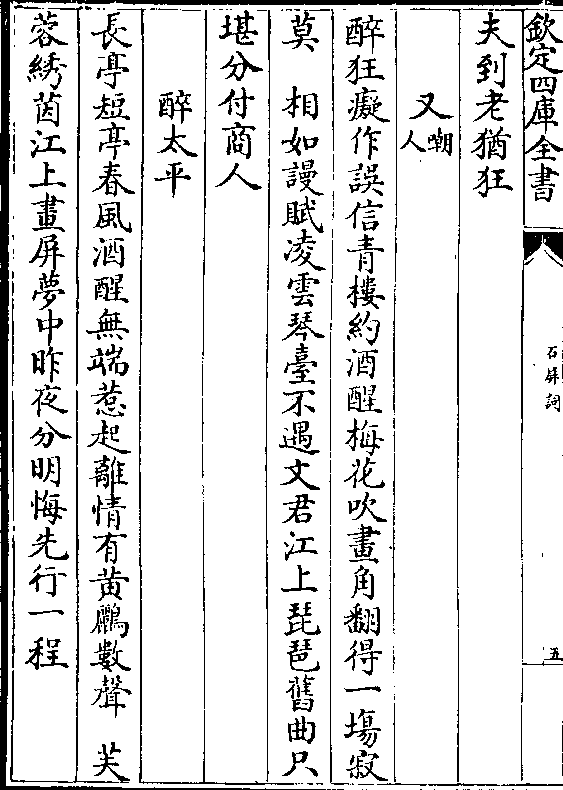 欽定四庫全書
石屏詞
五
夫到老猶狂
又嘲人
醉狂癡作誤信青樓約酒醒梅花吹畫角翻得一塲寂
莫　相如謾賦凌雲琴臺不遇文君江上琵琶舊曲只
堪分付商人
醉太平
長亭短亭春風酒醒無端惹起離情有黄鸝數聲　芙
蓉綉茵江上畫屏夢中昨夜分明悔先行一程